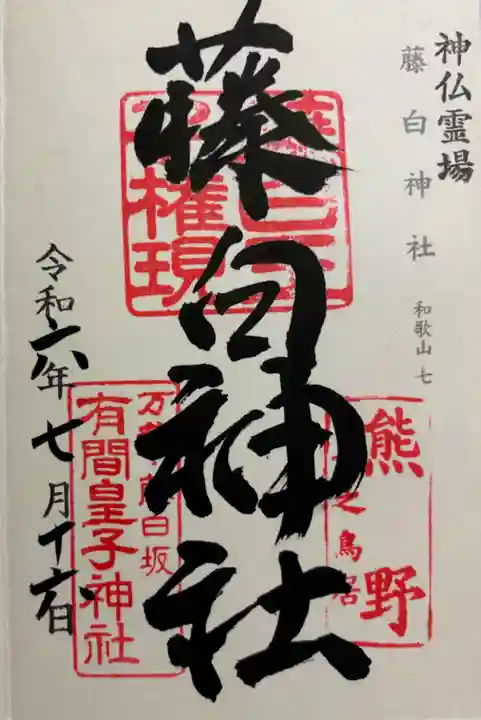 神仏霊場
藤白神社 和歌山 七
藤白神社
権現
熊野
之鳥居
万 白坂
有間皇子神社
令和六年七月十六日